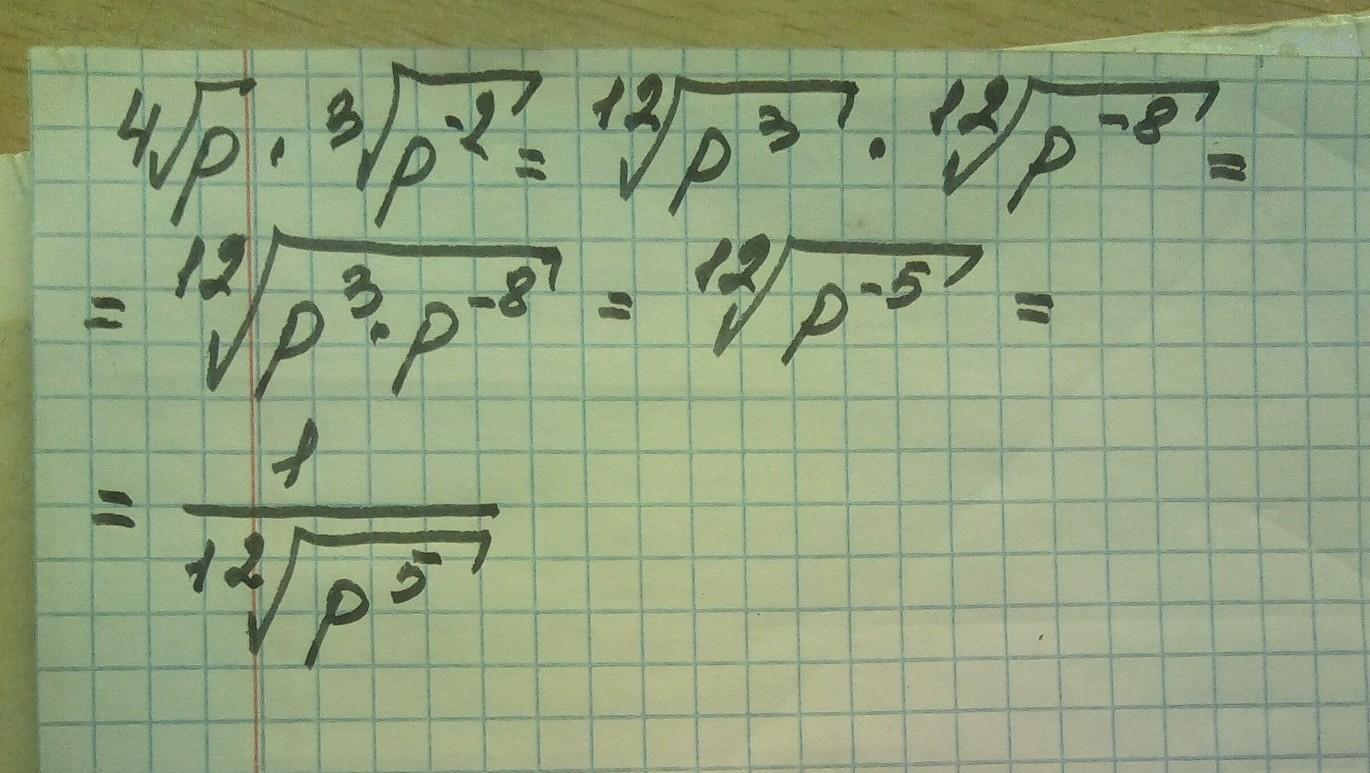 ⁴√p · ³√p⁻² = ¹²√p³ · ¹²√p⁻⁸ =
= ¹²√(p³ · p⁻⁸) = ¹²√p⁻⁵ =
= 1 / ¹²√p⁵